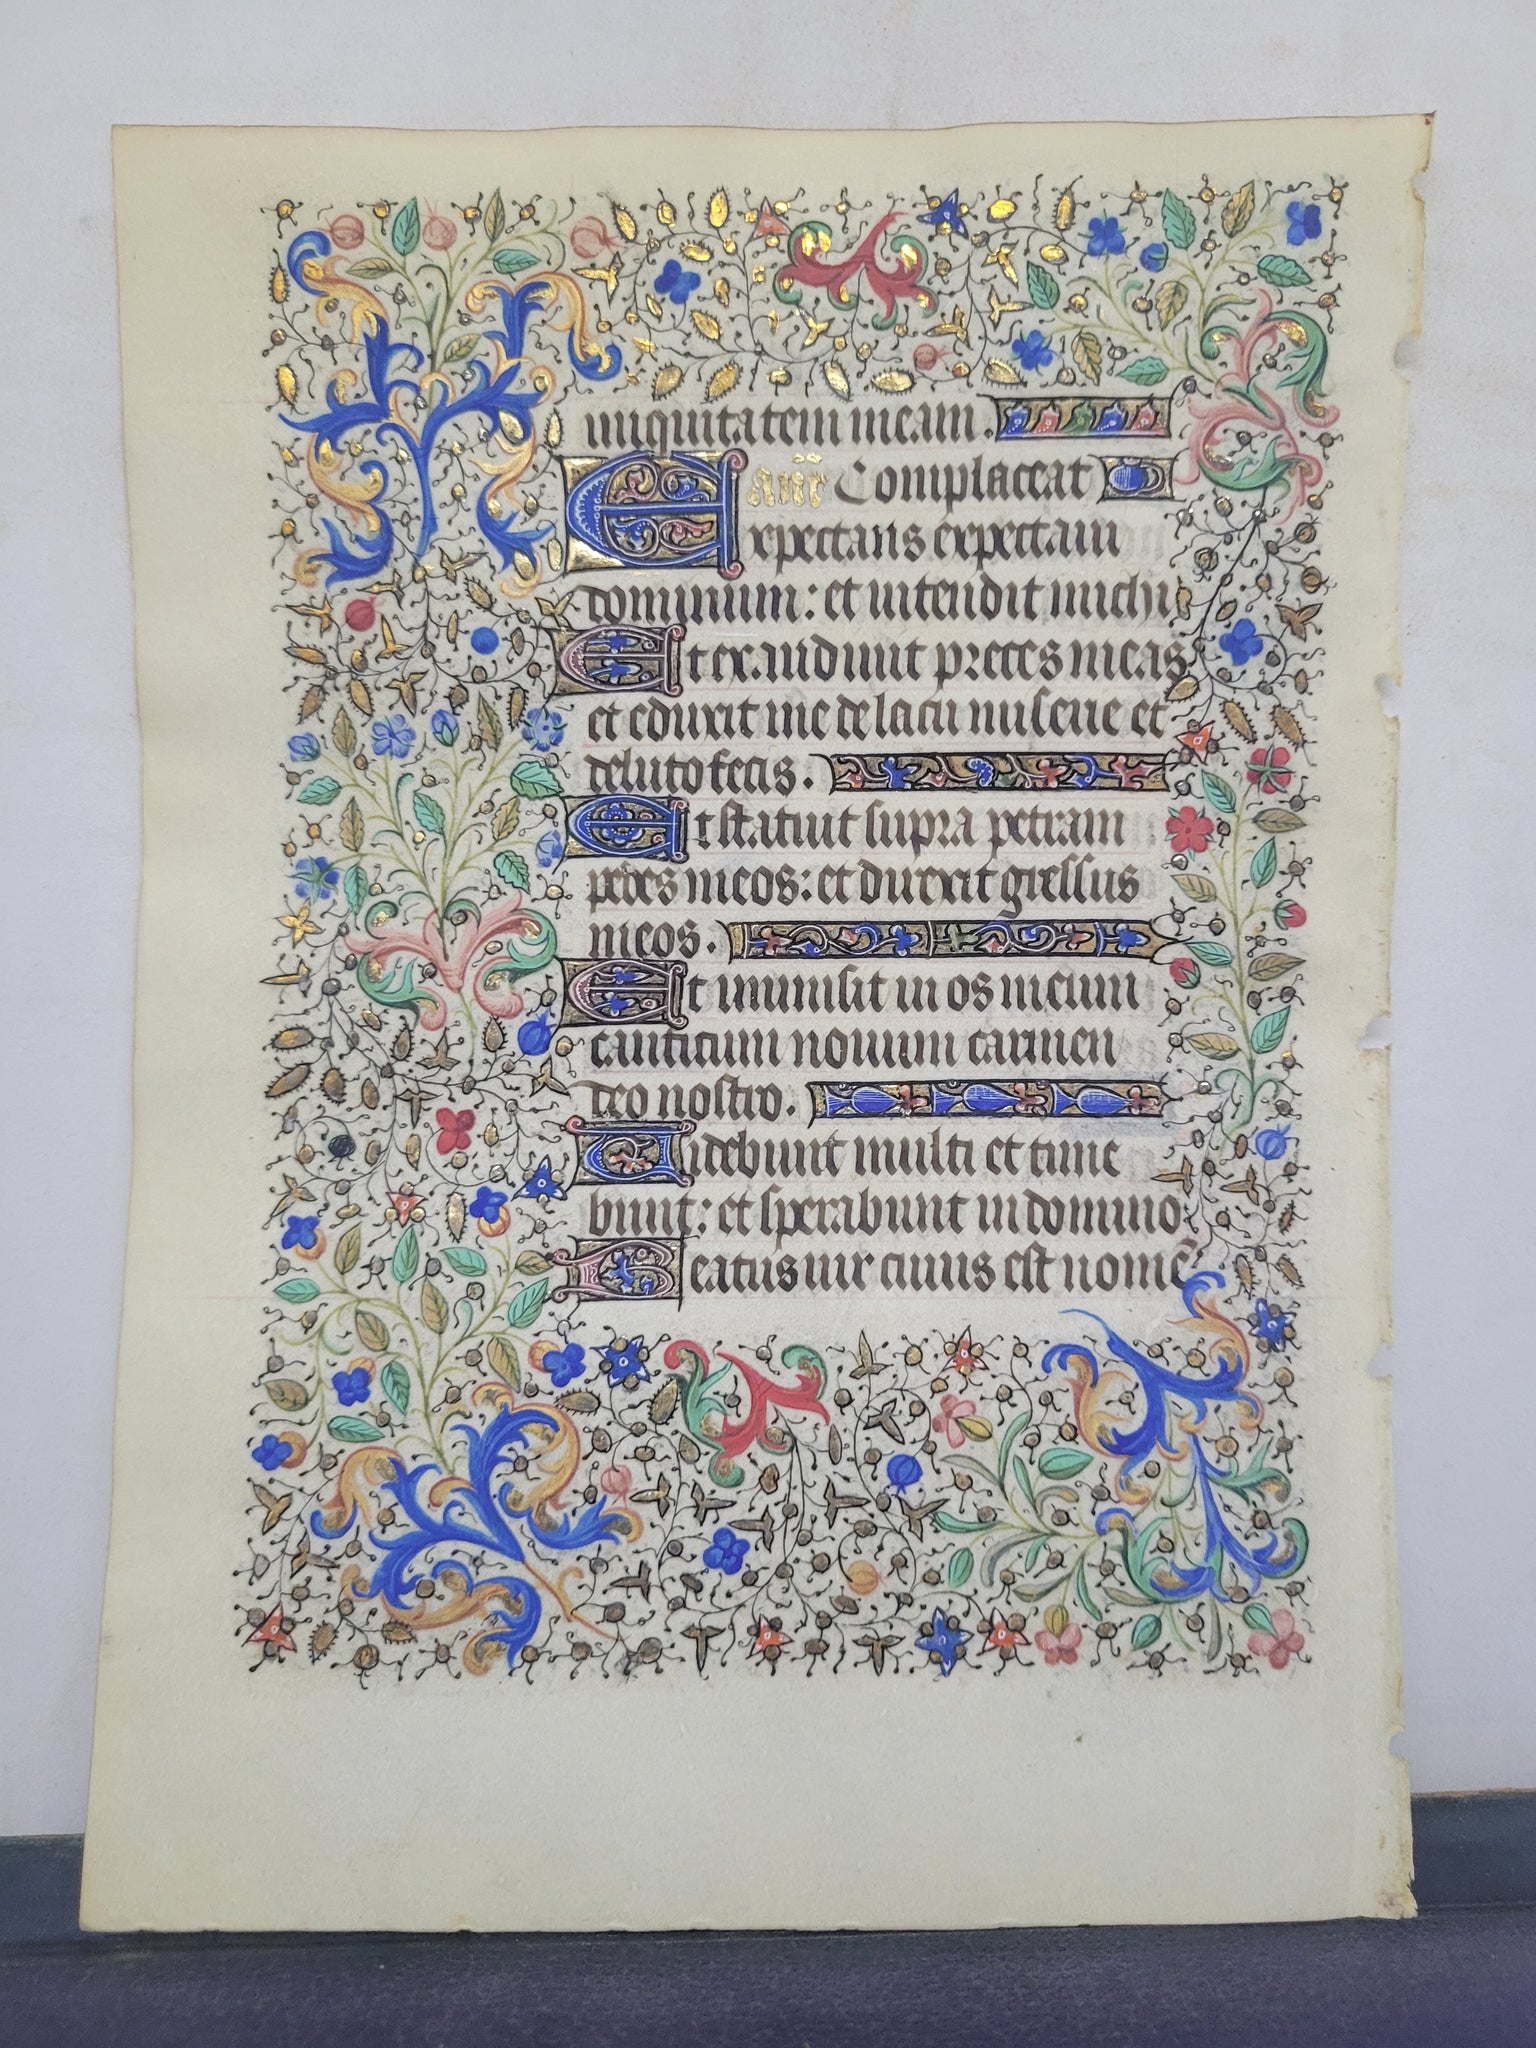 iniquitatem meam.
añr Complaceat
Expectans expectaui
dominum: et intendit michi
Et exaudiuit preces meas
et eduxit me de lacu miserie et
de luto fecis.
Et statuit supra petram
pedes meos: et direxit gressus
meos.
Et immisit in os meum
canticum nouum carmen
deo nostro.
Uidebunt multi et time
bunt: et sperabunt in domino
Beatus uir cuius est nomē